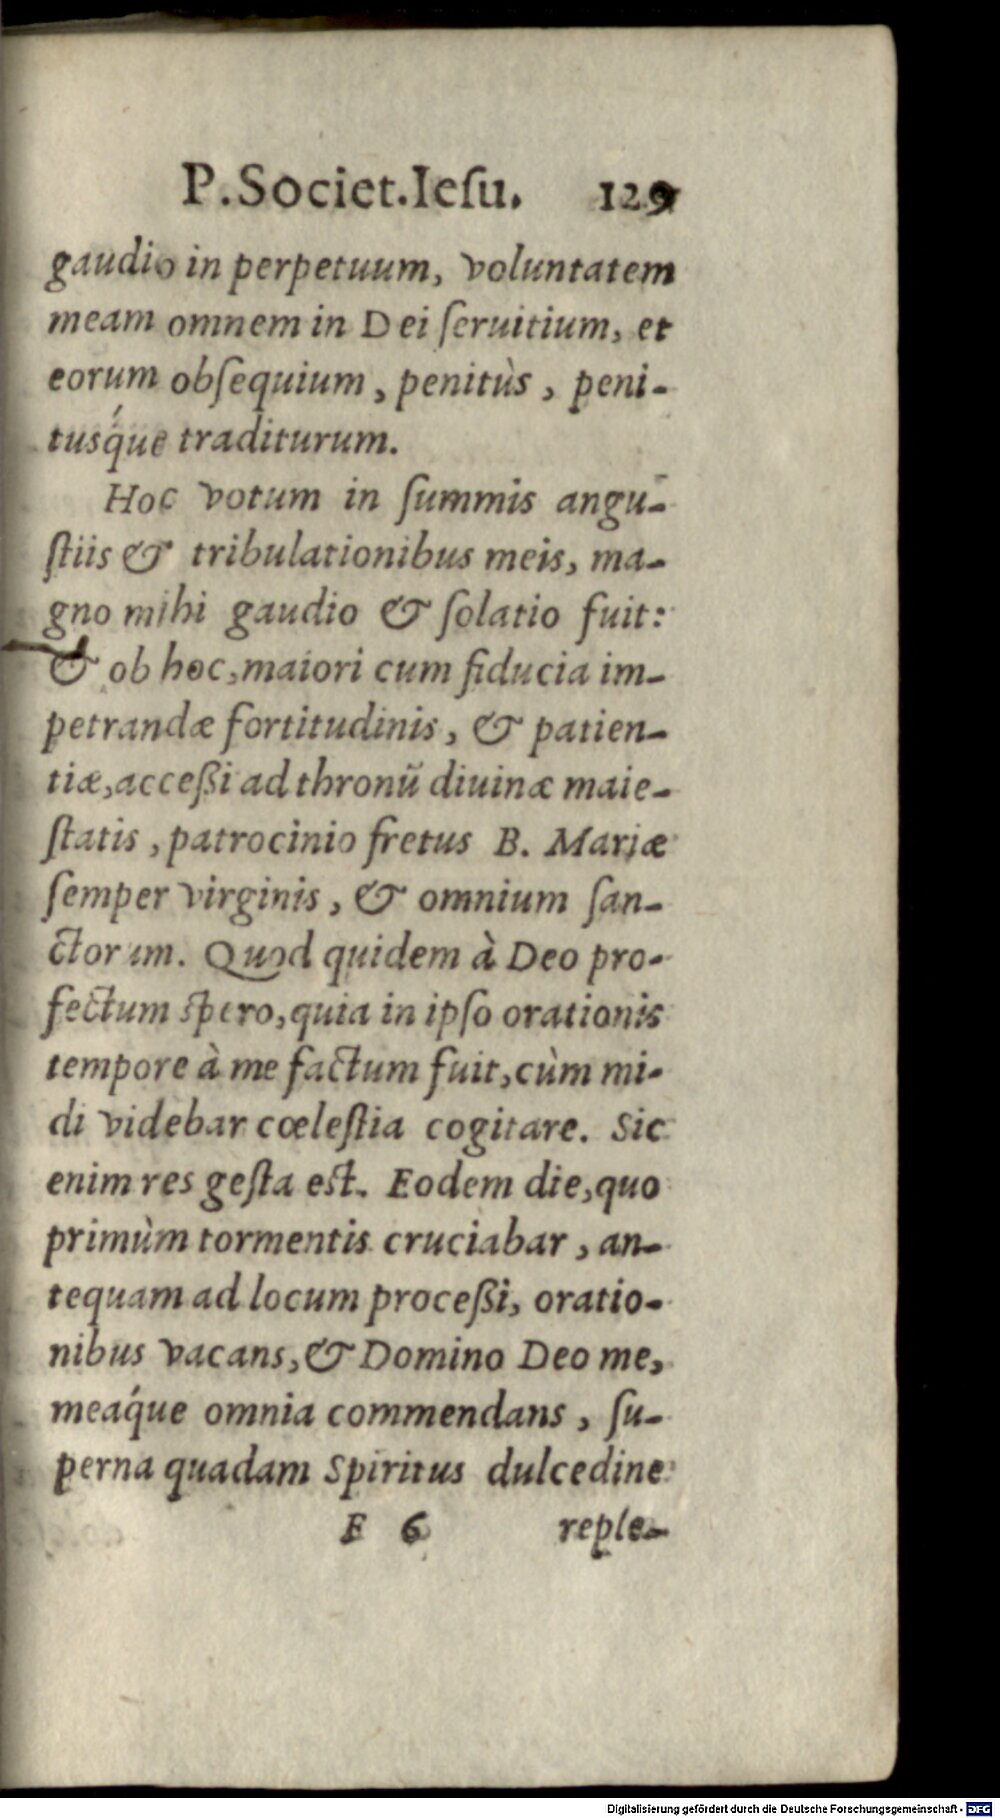 P. Societ. Iesu. 129
gaudio in perpetuum, voluntatem
meam omnem in Dei ſeruitium, et
eorum obſequium, penitùs, peni-
tusq́ue traditurum.
Hoc votum in ſummis angu-
ſtiis & tribulationibus meis, ma-
gno mihi gaudio & ſolatio fuit:
& ob hoc, maiori cum fiducia im-
petrandæ fortitudinis, & patien-
tiæ, acceßi ad thronū diuinæ maie-
ſtatis, patrocinio fretus B. Mariæ
ſemper virginis, & omnium ſan-
ctorum. Quod quidem à Deo pro-
fectum ſpero, quia in ipſo orationis
tempore à me factum fuit, cùm mi-
di videbar cœleſtia cogitare. Sic
enim res geſta eſt. Eodem die, quo
primùm tormentis cruciabar, an-
tequam ad locum proceßi, oratio-
nibus vacans, & Domino Deo me,
meaq́ue omnia commendans, ſu-
perna quadam Spiritus dulcedine
F 6 reple-
Digitalisierung gefördert durch die Deutsche Forschungsgemeinschaft - DFG